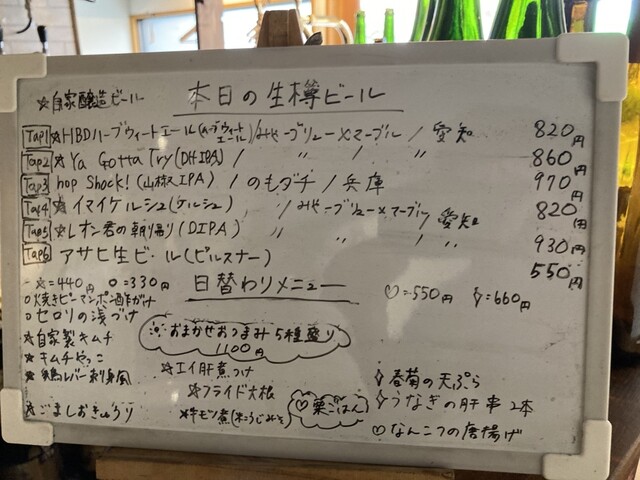 ☆自家醸造ビール 本日の生樽ビール
Tap1 ☆HBDハーブウィートエール(ハーブウィートエール)/みやーブリュー×マーブル/愛知 820円
Tap2 ☆Ya Gotta Try(DHIPA) / 〃 / 〃 860円
Tap3 hop Shock!(山椒IPA) /のもダチ/兵庫 970円
Tap4 ☆イマイケルシュ(ケルシュ) /みやーブリュー×マーブル/愛知 820円
Tap5 ☆レオン君の朝帰り(DIPA) / 〃 〃 / 〃 930円
Tap6 アサヒ生ビール(ピルスナー) 550円
☆=440円 ○=330円 日替わりメニュー ♡=550円 ♢=660円
○焼きピーマンポン酢がけ
○セロリの浅づけ
☆自家製キムチ
☆キムチやっこ
☆鶏レバー刺身風
☆ごましおきゅうり
おまかせおつまみ5種盛り
1100円
☆エイ肝煮つけ
☆フライド大根
☆牛モツ煮
♡栗ごはん
♢春菊の天ぷら
♢うなぎの肝串2本
♡なんこつの唐揚げ